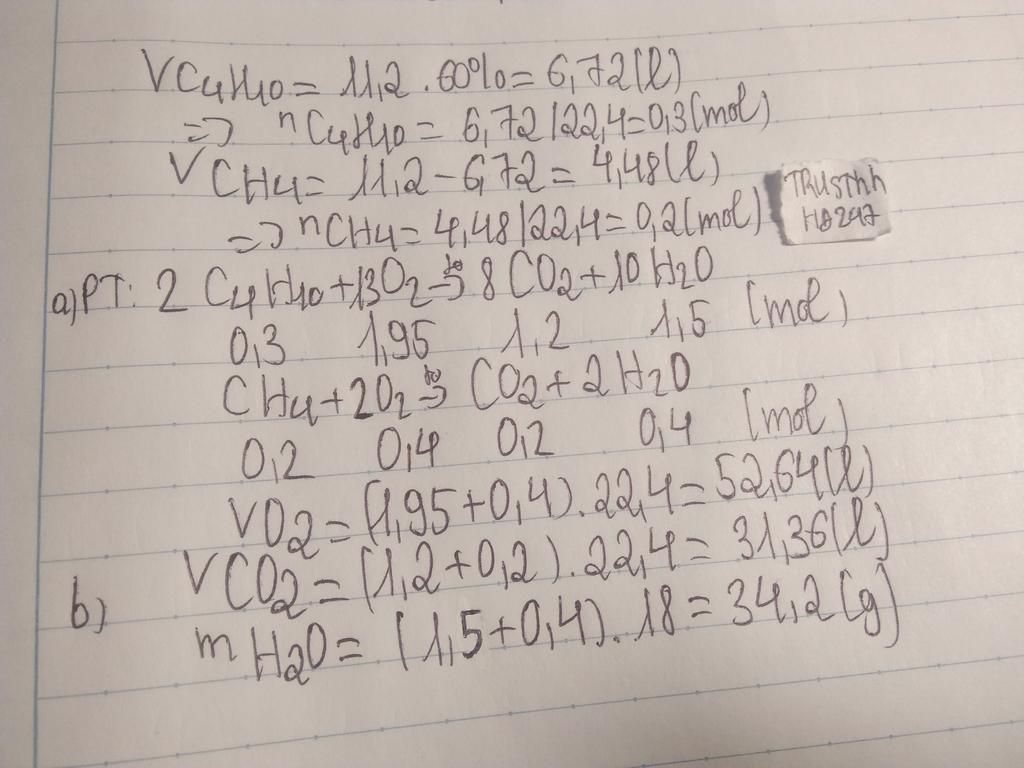 VC4H10 = 11,2 . 60% = 6,72 (l)
=> nC4H10 = 6,72 / 22,4 = 0,3 (mol)
VCH4 = 11,2 - 6,72 = 4,48 (l)
=> nCH4 = 4,48 / 22,4 = 0,2 (mol)
TRUSTnh
HB247
a) PT: 2 C4H10 + 13O2 →(to) 8 CO2 + 10 H2O
0,3 1,95 1,2 1,5 (mol)
CH4 + 2O2 →(to) CO2 + 2H2O
0,2 0,4 0,2 0,4 (mol)
VO2 = (1,95 + 0,4) . 22,4 = 52,64 (l)
VCO2 = (1,2 + 0,2) . 22,4 = 31,36 (l)
b)
mH2O = (1,5 + 0,4) . 18 = 34,2 (g)